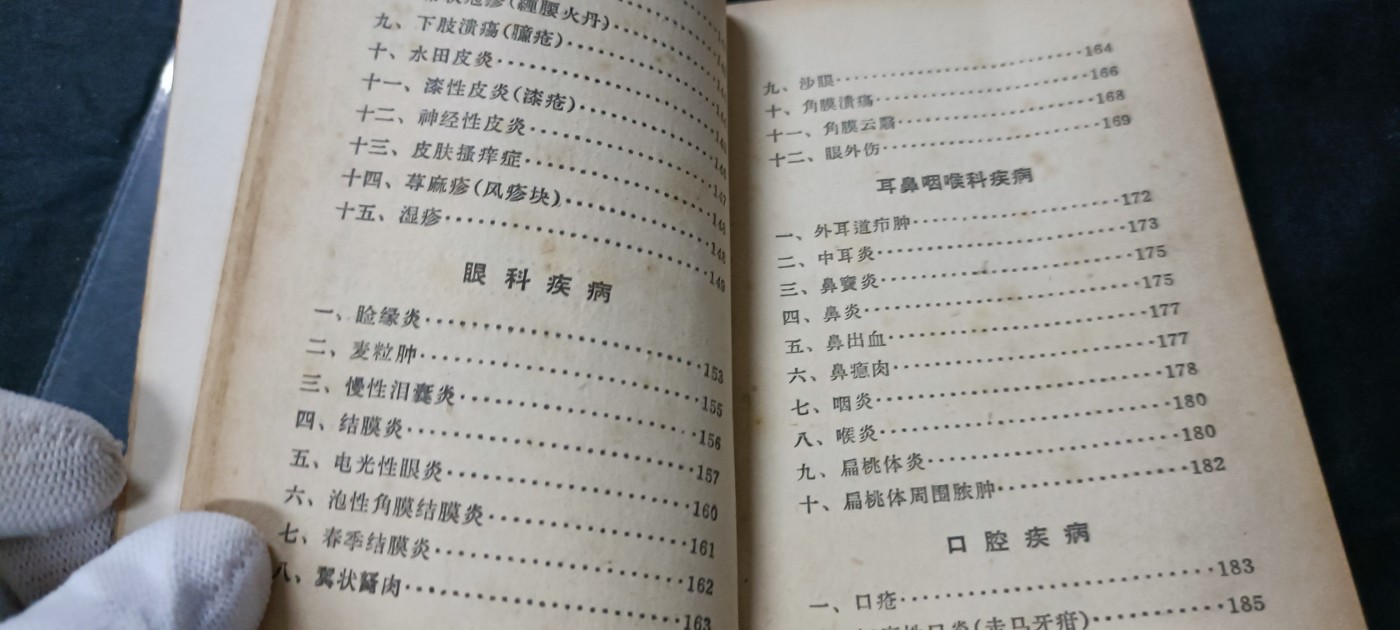 疹(缠腰火丹)
九、下肢溃疡(臁疮)
十、水田皮炎
十一、漆性皮炎(漆疮)
十二、神经性皮炎 147
十三、皮肤搔痒症
十四、荨麻疹(风疹块) 148
十五、湿疹 149
眼科疾病
一、睑缘炎 153
二、麦粒肿 155
三、慢性泪囊炎 156
四、结膜炎 157
五、电光性眼炎 160
六、泡性角膜结膜炎 161
七、春季结膜炎 162
八、翼状肉 163
九、沙眼 164
十、角膜溃疡 166
十一、角膜云翳 168
十二、眼外伤 169
耳鼻咽喉科疾病
一、外耳道疖肿 172
二、中耳炎 173
三、鼻窦炎 175
四、鼻炎 175
五、鼻出血 177
六、鼻瘜肉 177
七、咽炎 178
八、喉炎 180
九、扁桃体炎 180
十、扁桃体周围脓肿 182
口腔疾病
一、口疮 183
性口炎(走马牙疳) 185